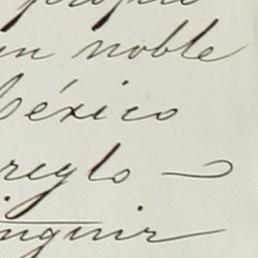 un noble
México
reglo —
inguir